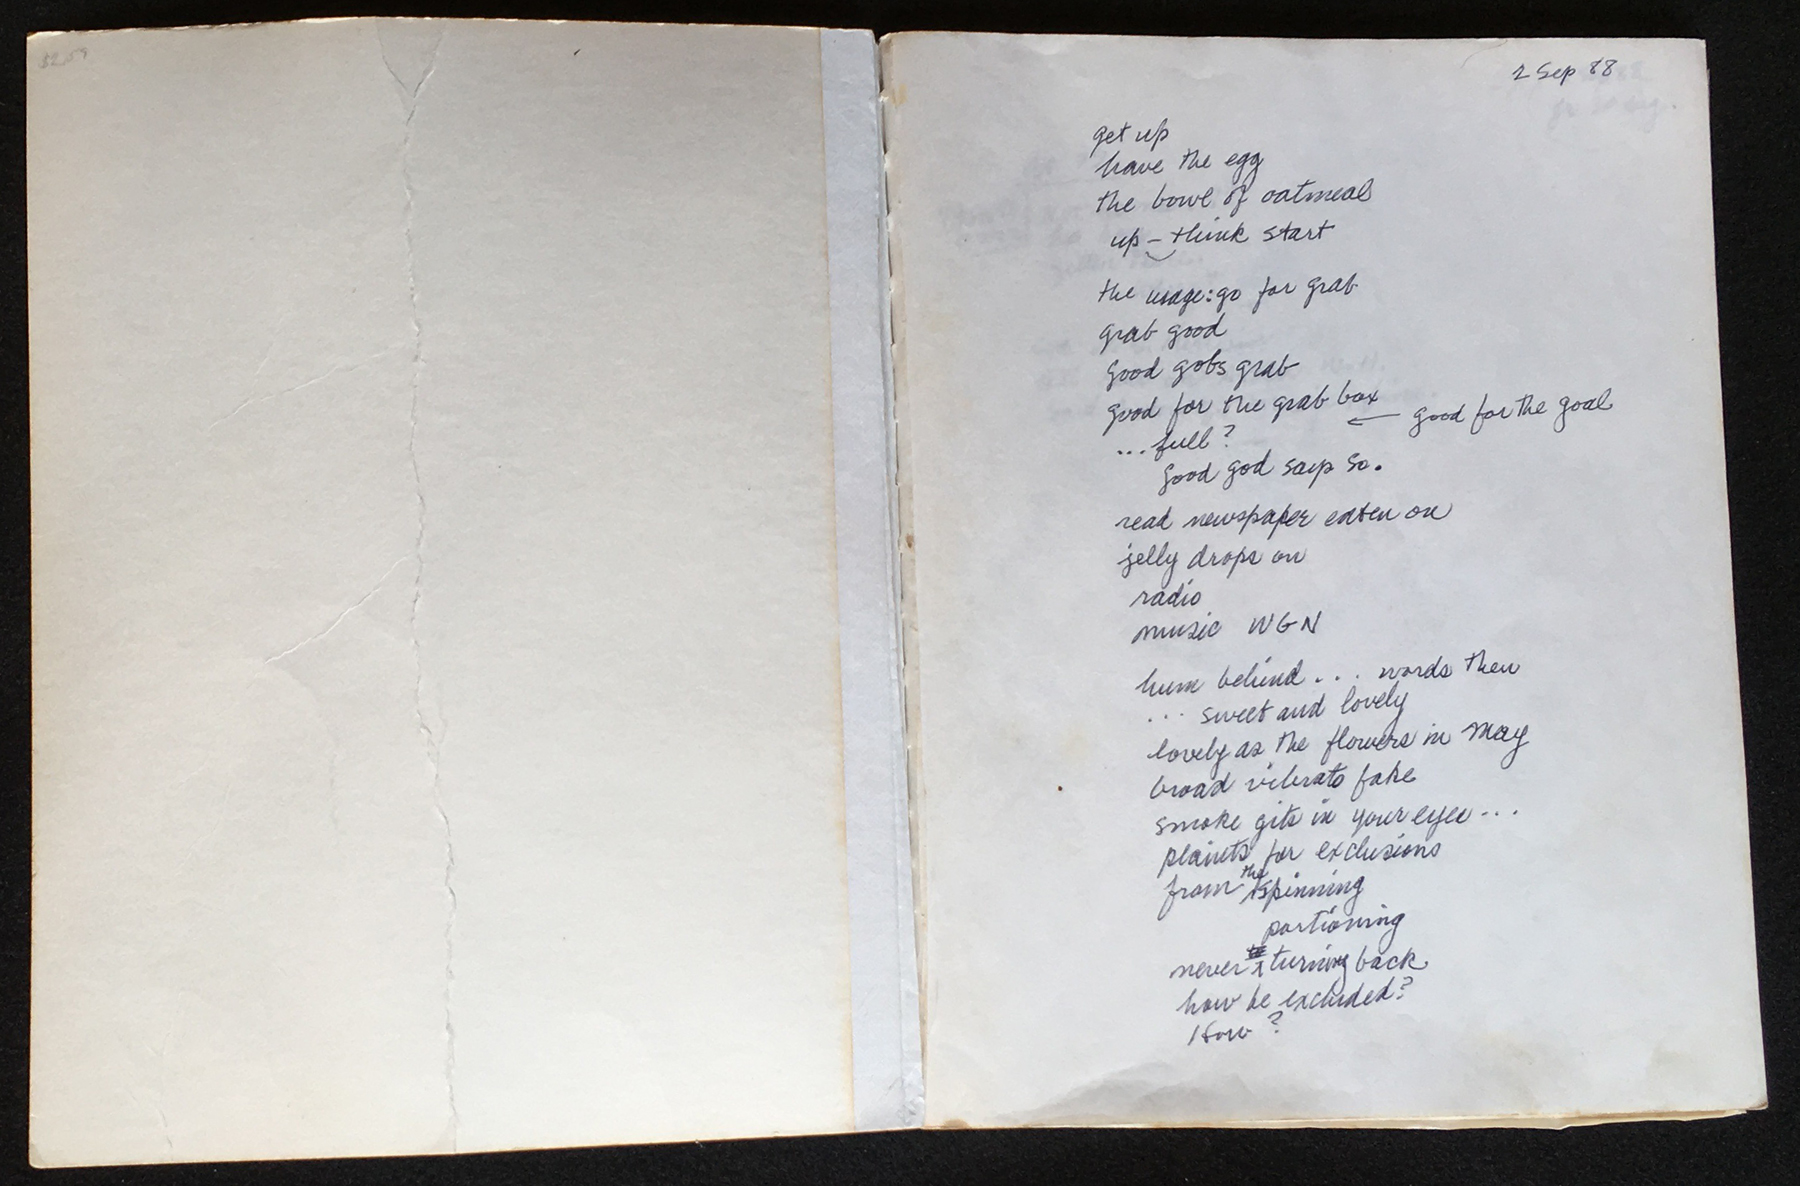 $2.59
2 Sep 88
get up
have the egg
the bowl of oatmeal
up – think start
the usage: go for grab
grab good
good gobs grab
good for the grab box
← good for the goal
... full?
good god says so.
read newspaper eaten on
jelly drops on
radio
music WGN
hum behind . . . words then
... sweet and lovely
lovely as the flowers in May
broad vibrato fake
smoke gits in your eyes ...
plaints for exclusions
from the spinning
portioning
never turning back
how be excluded?
How?